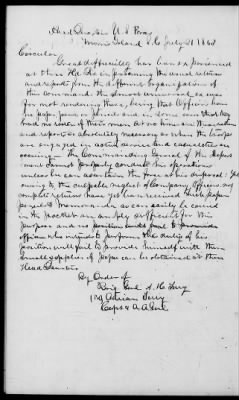 Head Quarters U.S. Forces
Morris Island S.C. July 21 1863
Circular
Great difficulty has been experienced
at these Hd Qrs in obtaining the usual returns
and reports from the different organizations of
this Command. The almost universal excuse
for not rendering them, being that Officers have
no paper, pens or pencils and in some cases that they
had no roster of their men. At no time are these returns
and reports so absolutely necessary as when the troops
are engaged in active service and casualties are
occurring. The Commanding General of the Depart-
ment cannot properly conduct his operations
unless he can ascertain the force at his disposal: Yet
owing to the culpable neglect of Company Officers no
complete returns have yet been received. Such paper
pencils & memoranda as can easily be carried
in the pocket are amply sufficient for this
purpose and no
officer who intends to perform the duties of his
position will fail to provide himself with them
Small supplies of paper can be obtained at these
Head Quarters
By Order of
Brig. Genl. A. H. Terry
Adrian Terry
Capt & A.A. Genl.